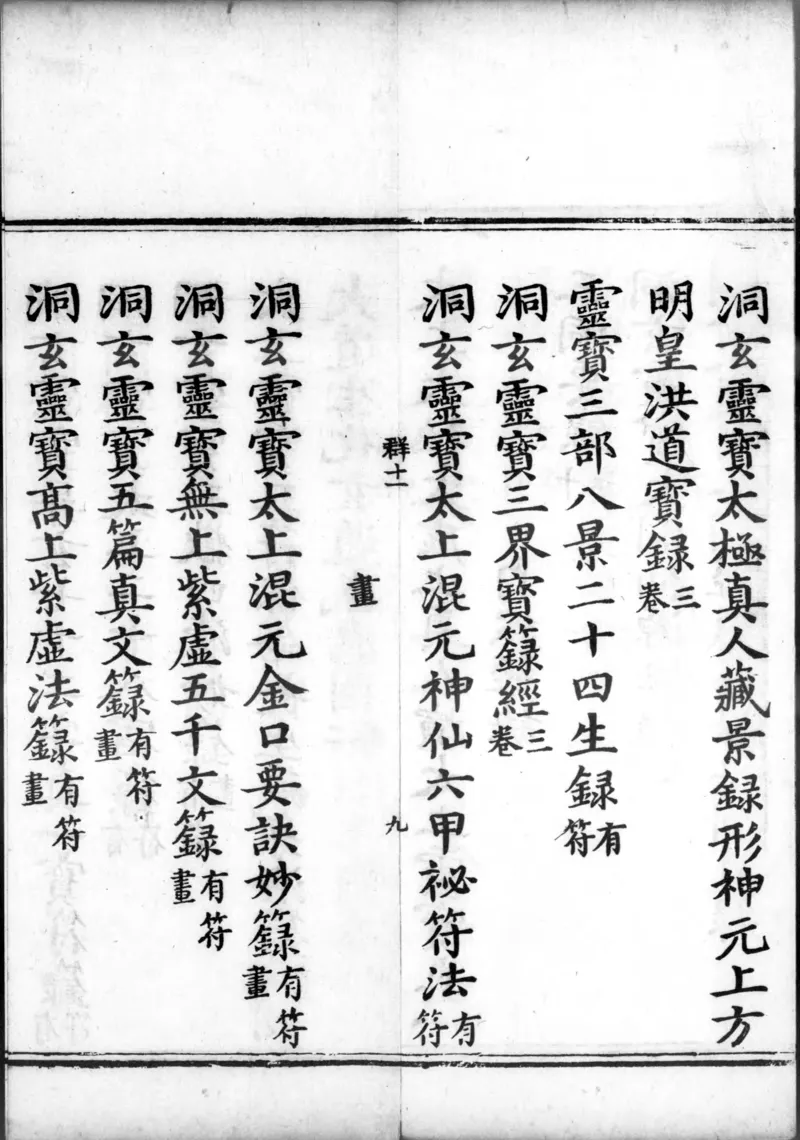 洞玄靈寶太極真人藏景録形神元上方
明皇洪道寶録三卷
靈寶三部八景二十四生録有符
洞玄靈寶三界寶籙經三卷
洞玄靈寶太上混元神仙六甲祕符法有符
群十一 九
畫
洞玄靈寶太上混元金口要訣妙籙有符畫
洞玄靈寶無上紫虛五千文籙有符畫
洞玄靈寶五篇真文籙有符畫
洞玄靈寶高上紫虛法籙有符畫